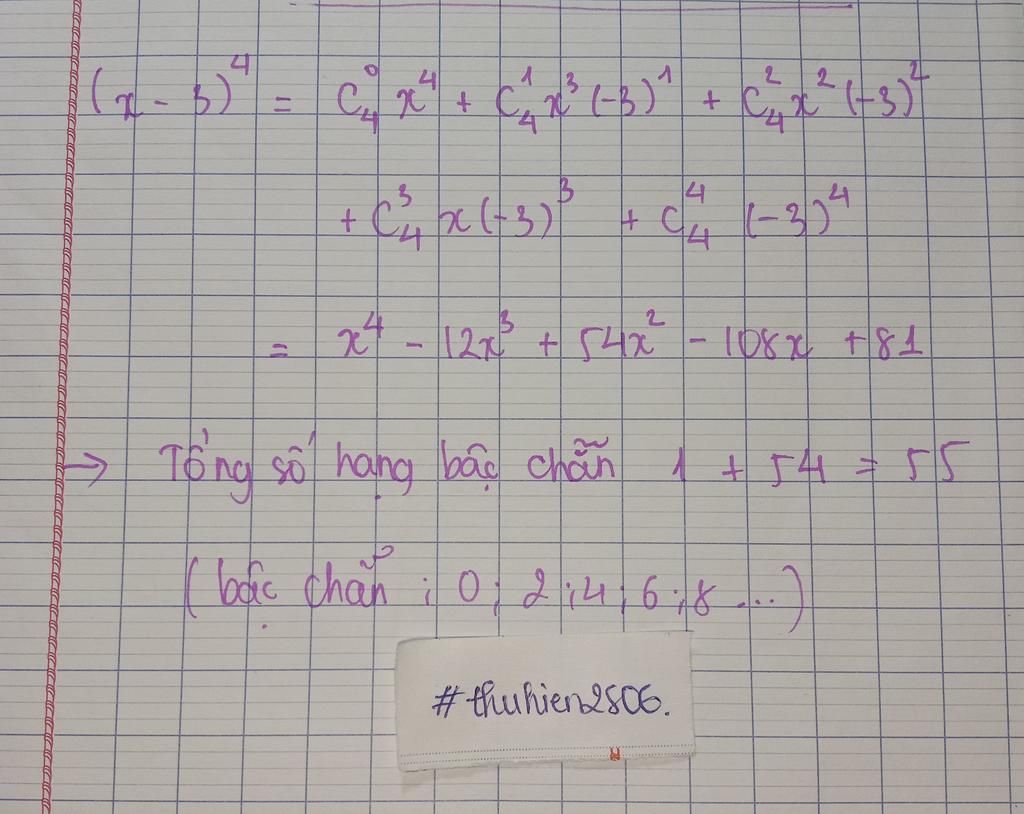 (x - 3)⁴ = C₄⁰ x⁴ + C₄¹ x³ (-3)¹ + C₄² x² (-3)²
+ C₄³ x (-3)³ + C₄⁴ (-3)⁴
= x⁴ - 12x³ + 54x² - 108x + 81
→ Tổng số hạng bậc chẵn 1 + 54 = 55
( bậc chẵn ; 0 ; 2 ; 4 ; 6 ; 8 ... )
#thuhien2806.